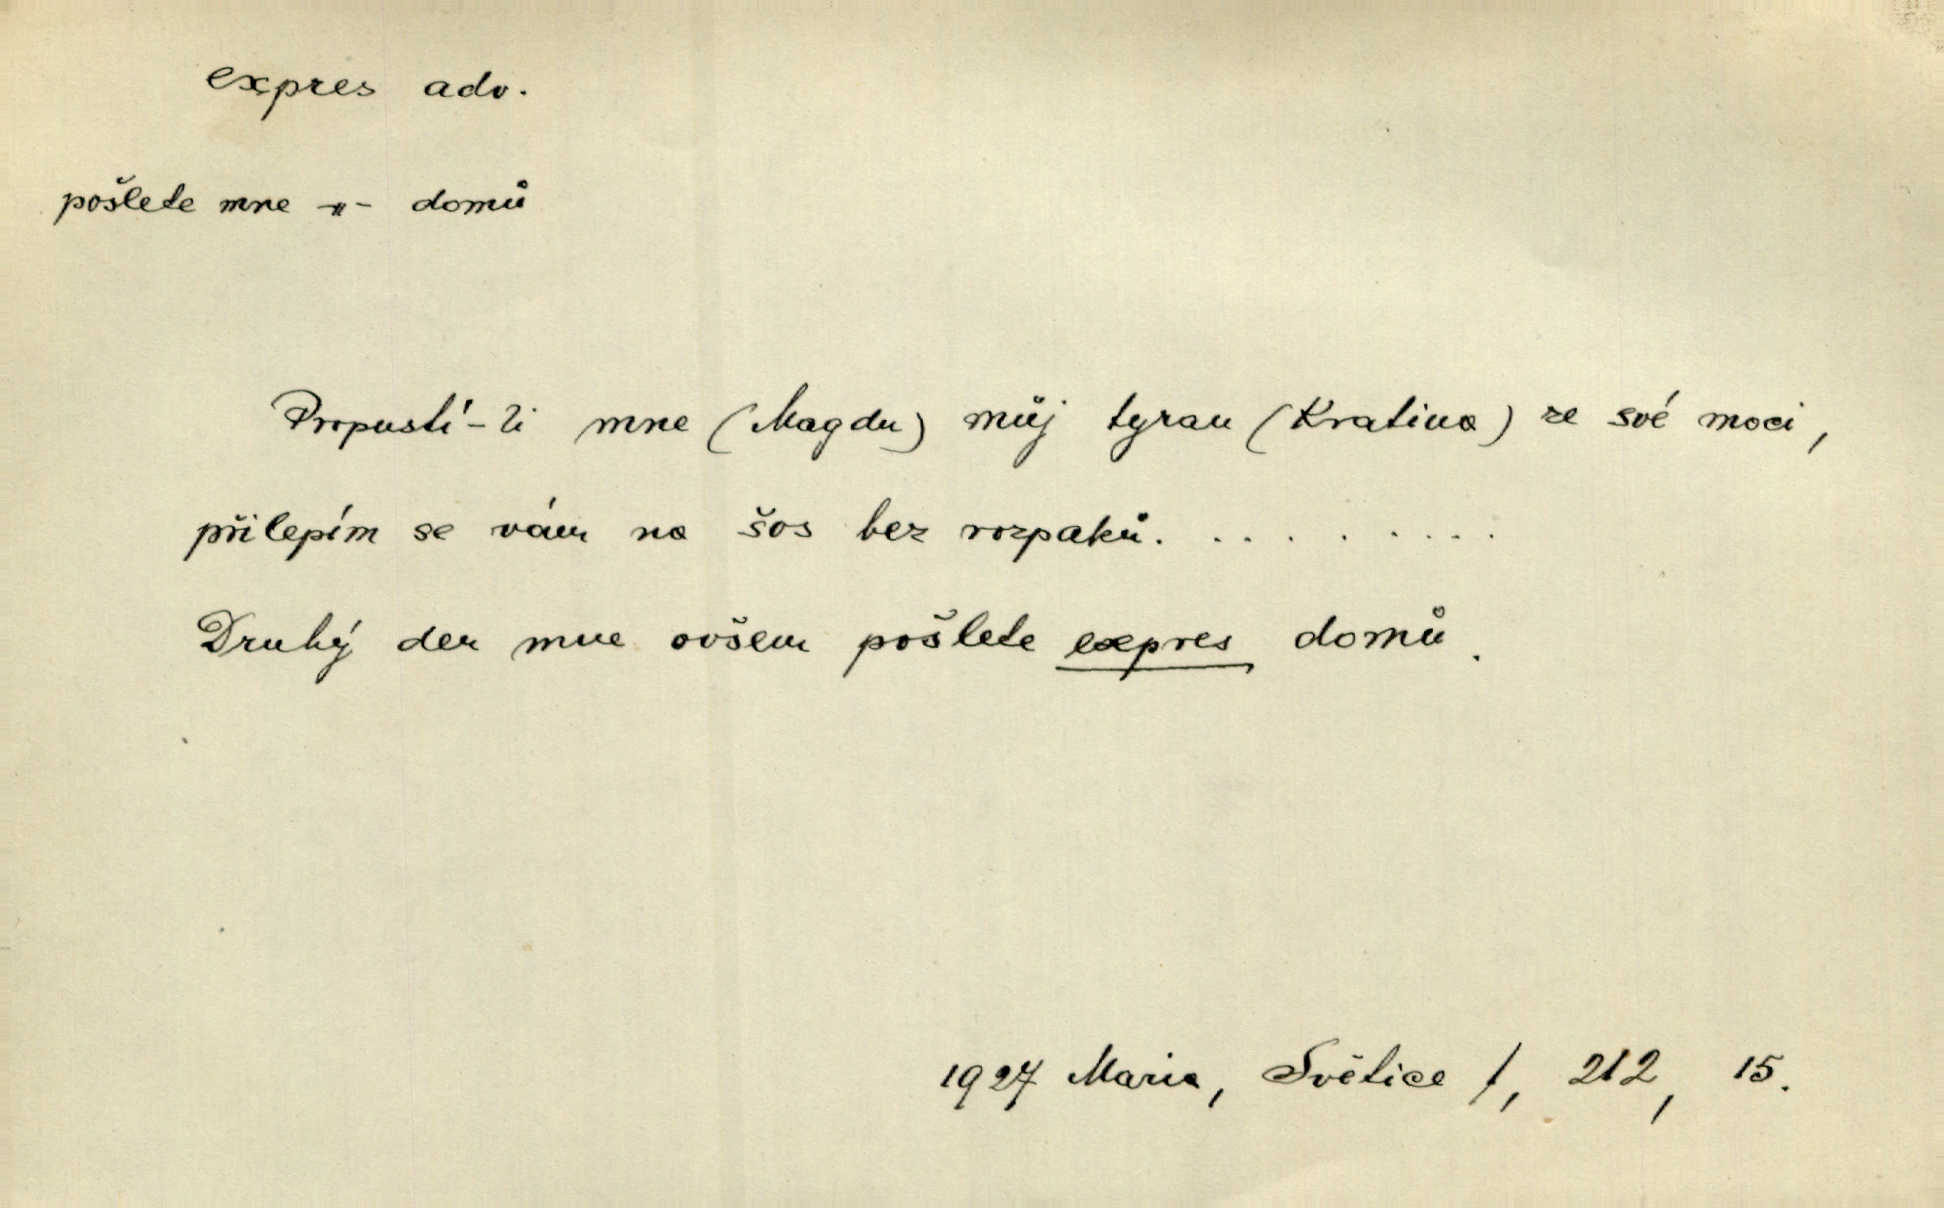 expres adv.
pošlete mne -〃- domů
Propustí-li mne (Magdu) můj tyran (Kratina) ze své moci,
přilepím se vám na šos bez rozpaků. . . . . . . . .
Druhý den mne ovšem pošlete expres domů.
1927 Maria, Světice I, 212, 15.